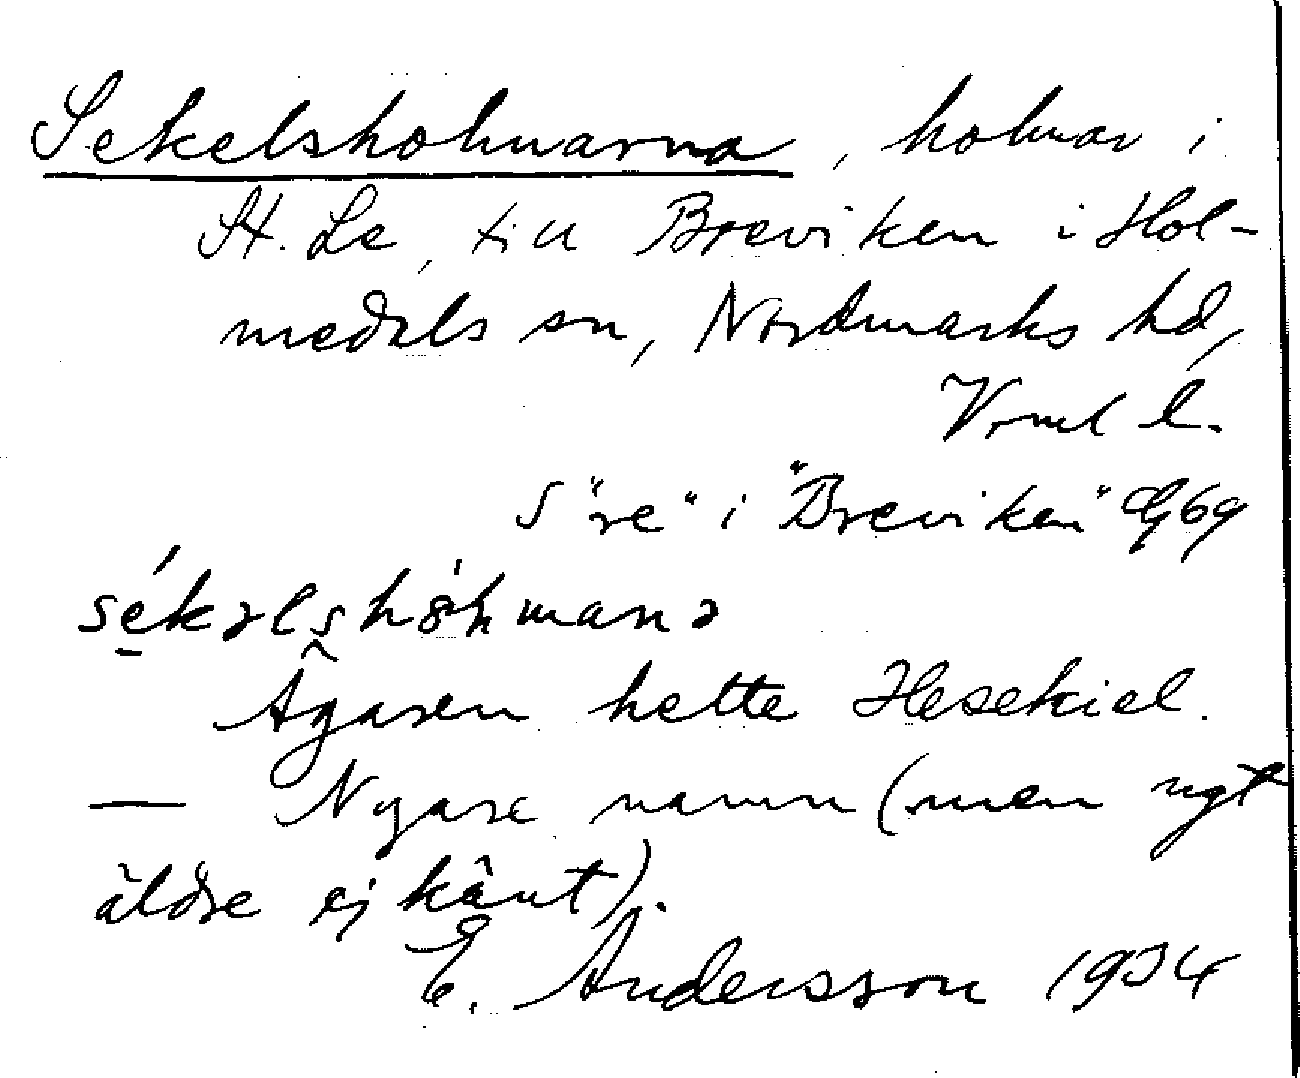 Sekelsholmarna, holmar i
St. Le, till Breviken i Hol-
medals sn, Nordmarks hd,
Vrml l.
S "re" i "Breviken" G69
sékəlshòhmanə
Ägaren hette Hesekiel.
— Nyare namn (men ngt
äldre ej känt).
E. Andersson 1934